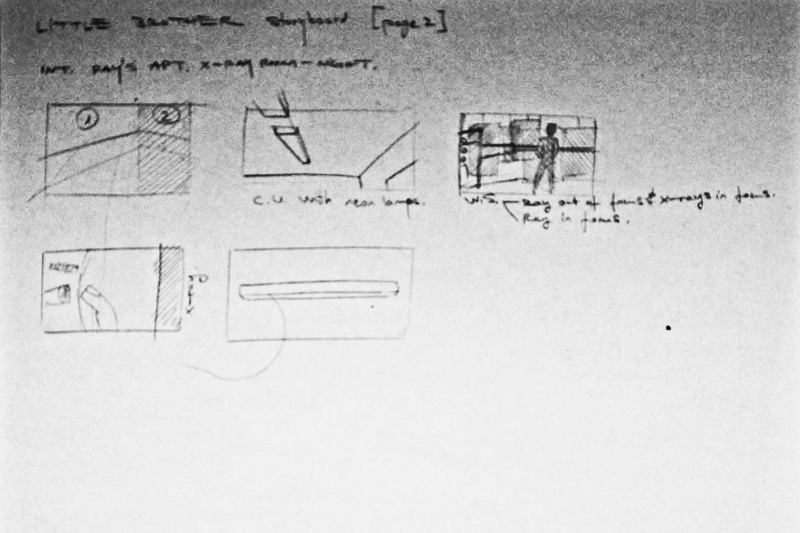 LITTLE BROTHER Storyboard [page 2]
INT. RAY'S APT. X-RAY ROOM - NIGHT.
1 2
C.U. with neon lamps.
W.S. Ray out of focus & x-rays in focus.
Ray in focus.
x-ray